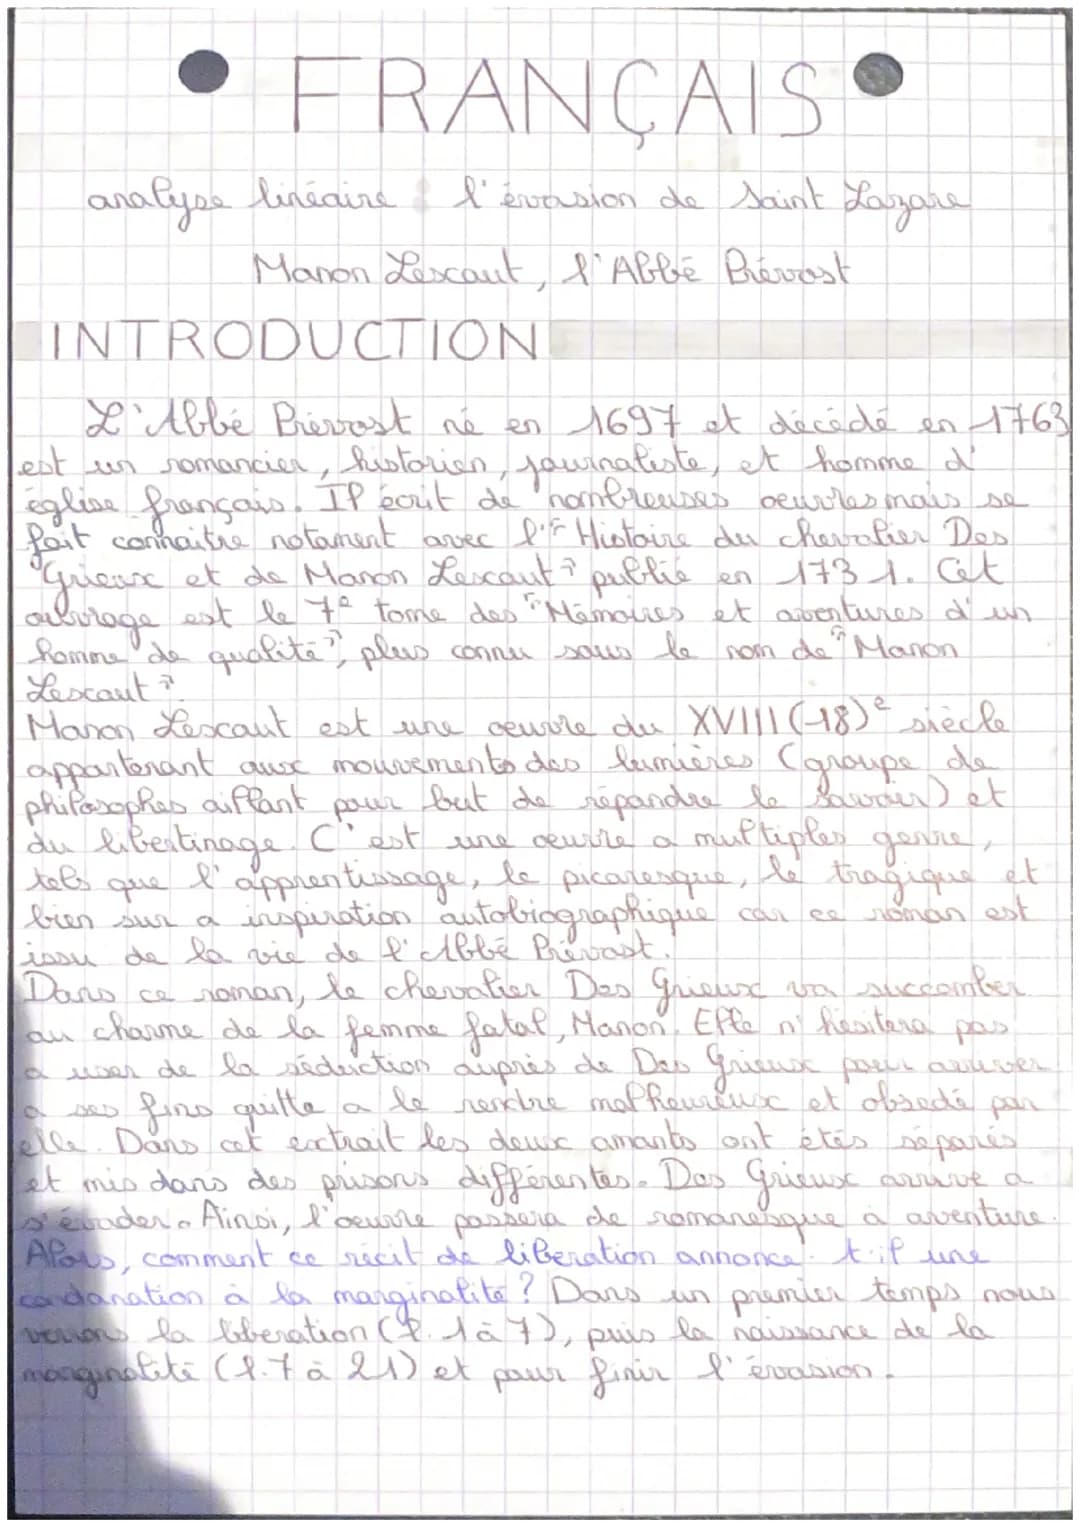 FRANÇAIS
analyse linéaire : l'évasion de Saint Lazare
Manon Lescaut, l'Abbé Prévost
INTRODUCTION
L'Abbé Prévost né en 1697 et décédé en 1763
est un romancier, historien, journaliste, et homme d'
église français. Il écrit de nombreuses oeuvres mais se
fait connaitre notament avec l'" Histoire du chevalier Des
Grieux et de Manon Lescaut" publié en 1731. Cet
ouvrage est le 7e tome des "Mémoires et aventures d'un
homme de qualité", plus connu sous le nom de "Manon
Lescaut".
Manon Lescaut est une oeuvre du XVIII (18)e siècle
appartenant aux mouvements des lumières (groupe de
philosophes aillant pour but de répandre le savoir) et
du libertinage. C'est une oeuvre a multiples genre,
tels que l'apprentissage, le picaresque, le tragique et
bien sur a inspiration autobiographique car ce roman est
issu de la vie de l'Abbé Prévost.
Dans ce roman, le chevalier Des Grieux va succomber
au charme de la femme fatal, Manon. Elle n'hésitera pas
a user de la séduction auprès de Des Grieux pour arriver
a ses fins quitte a le rendre malheureux et obsédé par
elle. Dans cet extrait les deux amants ont étés séparés
et mis dans des prisons différentes. Des Grieux arrive a
s'évader. Ainsi, l'oeuvre passera de romanesque à aventure.
Alors, comment ce récit de libération annonce-t-il une
condanation à la marginalité ? Dans un premier temps nous
verrons la libération (l. 1 à 7), puis la naissance de la
marginalité (l. 7 à 21) et pour finir l'évasion.